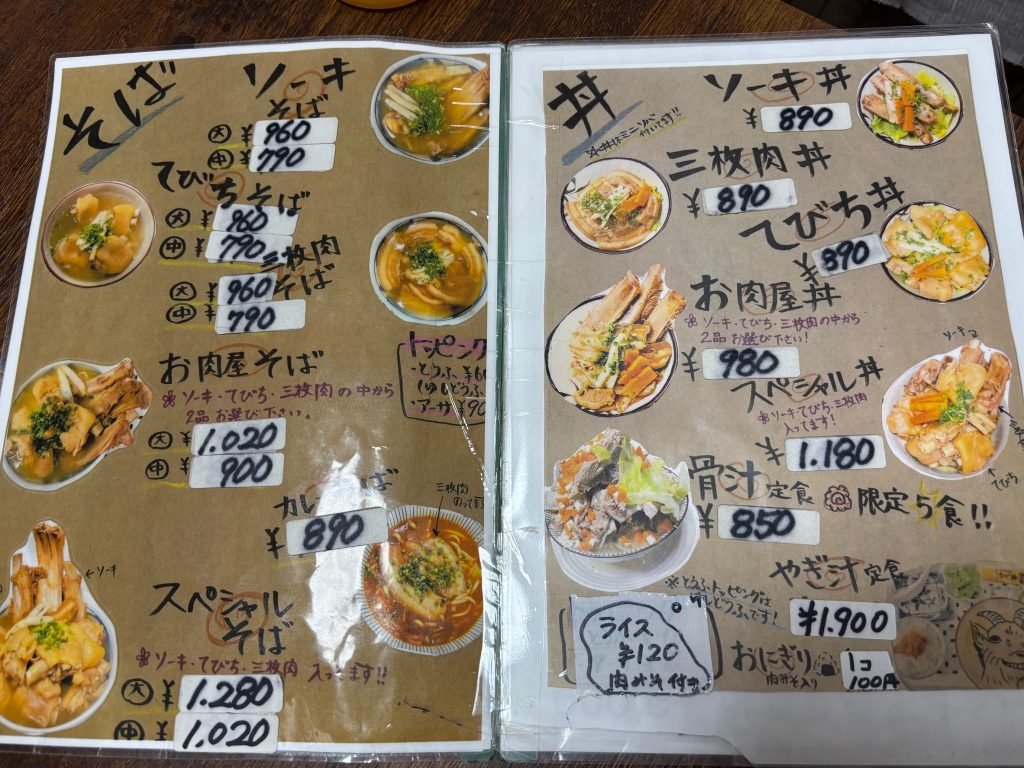 そば
ソーキ
そば
大 ¥960
中 ¥790
てびちそば
大 ¥960
中 ¥790
三枚肉
そば
大 ¥960
中 ¥790
お肉屋そば
❀ ソーキ・てびち・三枚肉の中から
2品お選び下さい。
大 ¥1.020
中 ¥900
トッピング
・とうふ ¥60
(ゆしどうふ)
・アーサ ¥90
カレ
ば
¥890
三枚肉
のってます
スペシャル
そば
❀ ソーキ・てびち・三枚肉 入ってます!!
大 ¥1.280
中 ¥1.020
←ソーキ
丼
※丼はミニそば
付いてます!!
ソーキ丼
¥890
三枚肉丼
¥890
てびち丼
¥890
お肉屋丼
❀ ソーキ・てびち・三枚肉の中から
2品お選び下さい!
¥980
スペシャル丼
❀ソーキ・てびち・三枚肉
入ってます!
¥1.180
ソーキ
てびち
骨汁定食
限定5食!!
¥850
やぎ汁定食
¥1.900
※とうふトッピングは
ゆしどうふです!
ライス
¥120
肉みそ付き
おにぎり
肉みそ入り
1コ
100円